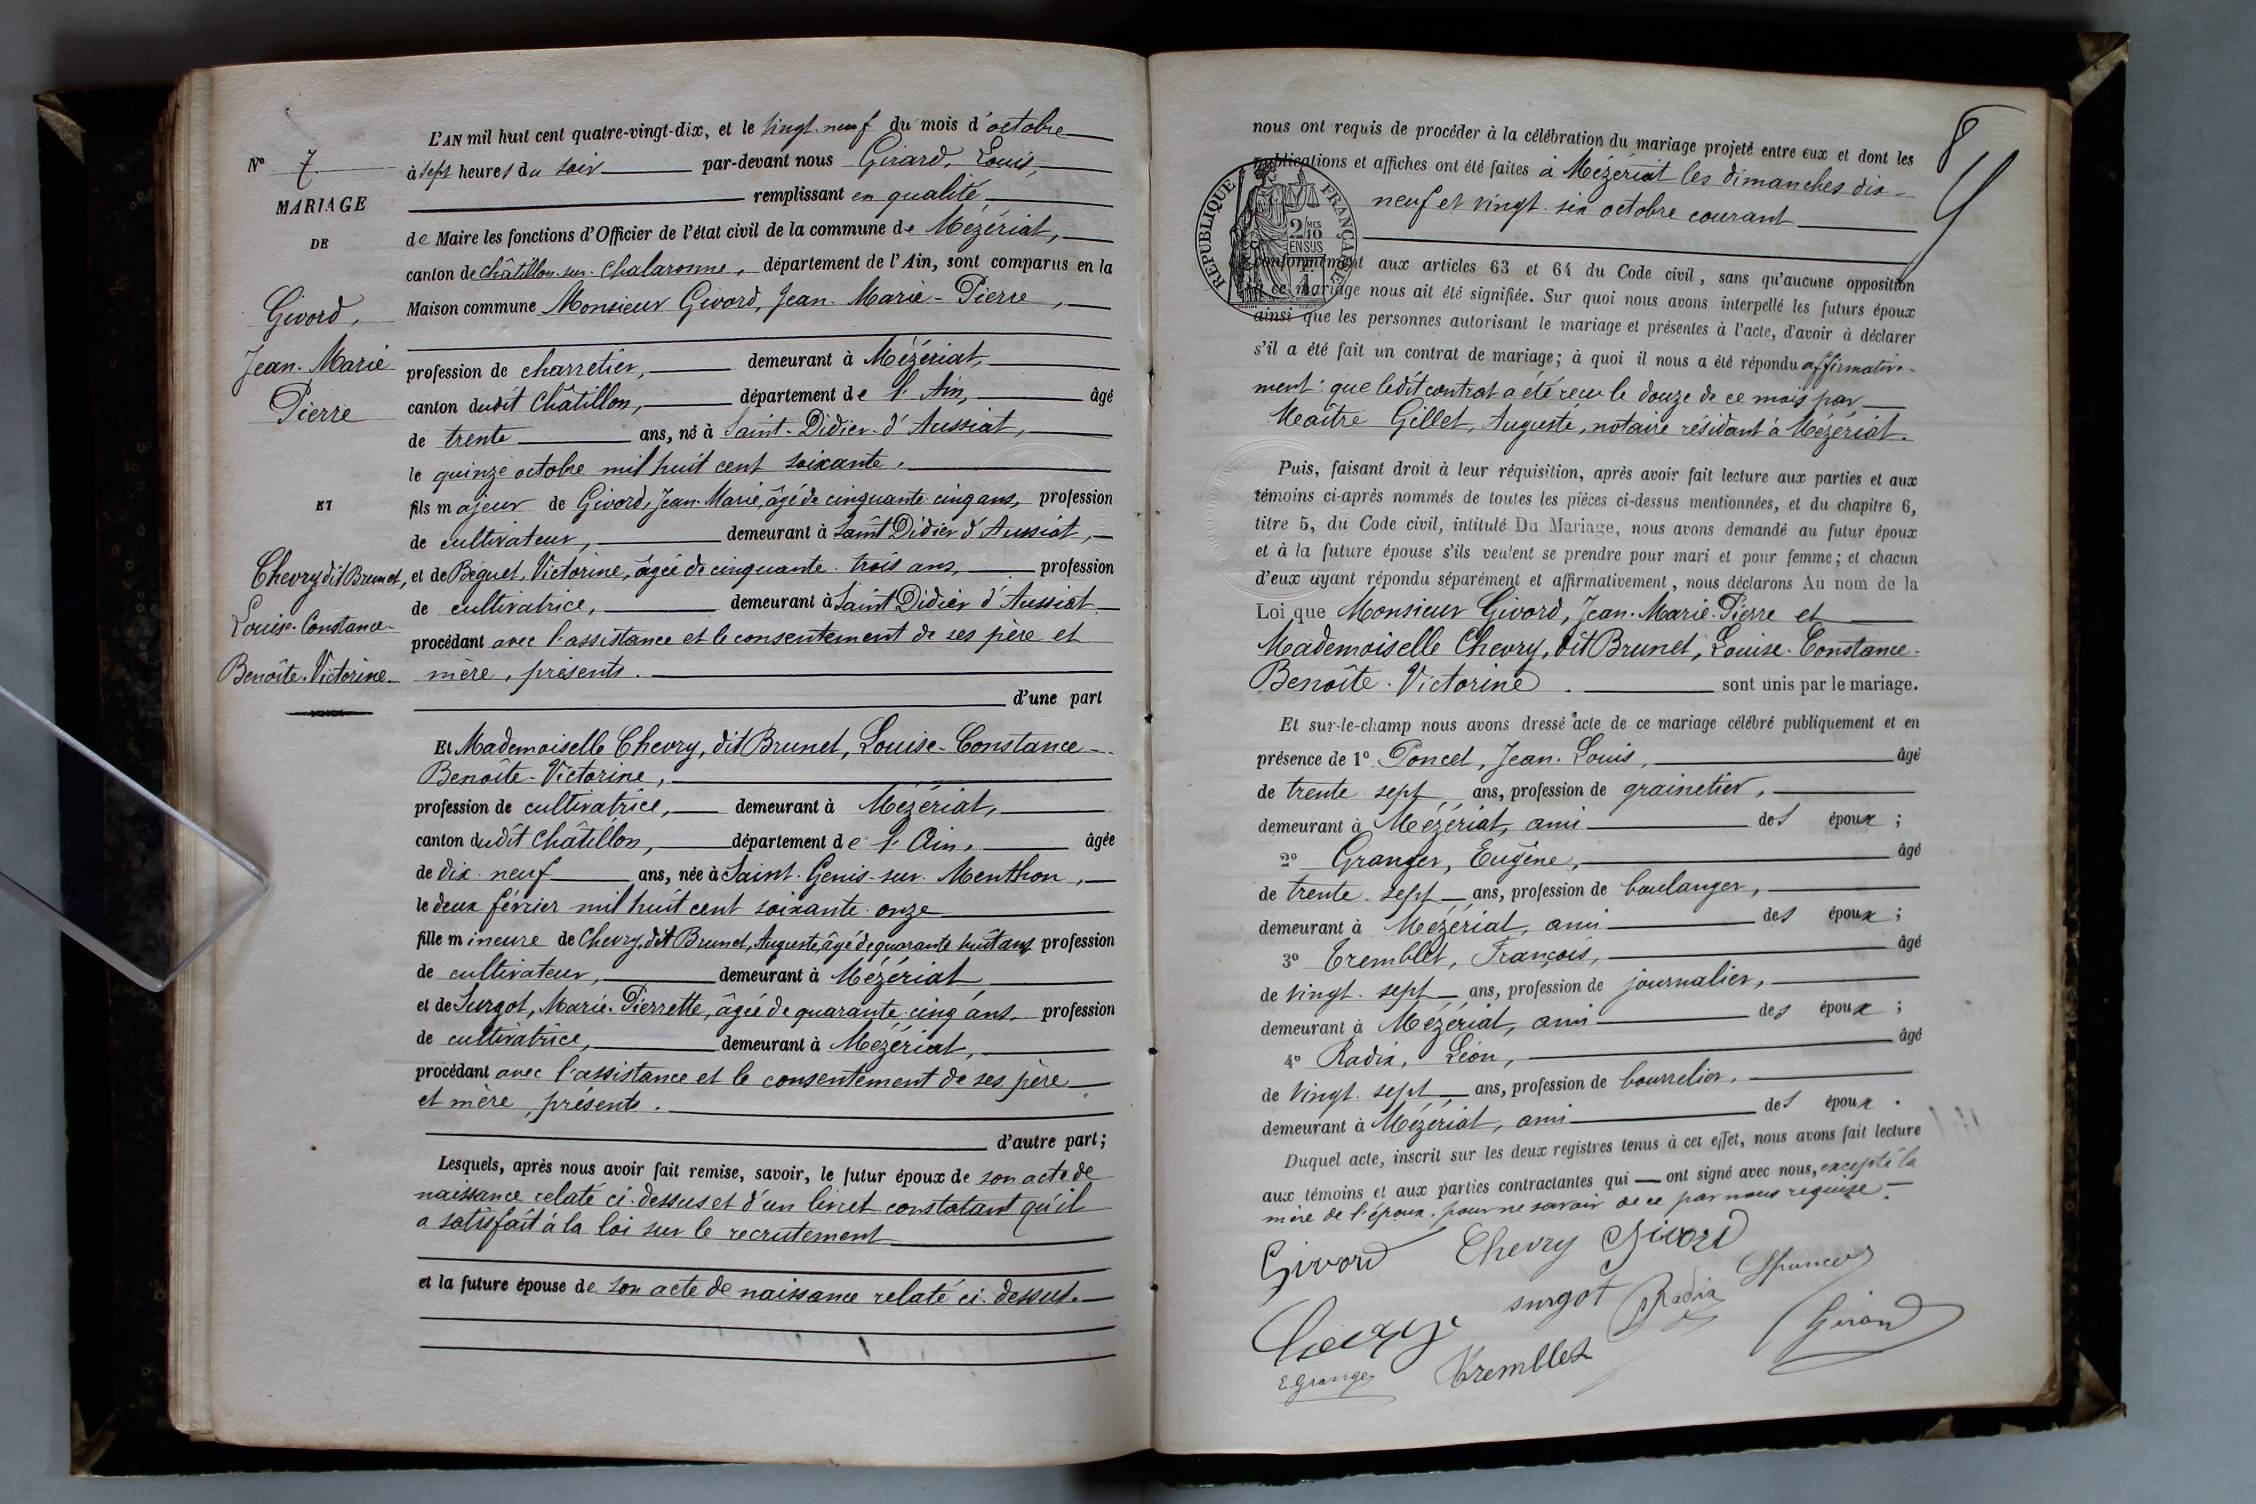 L'AN mil huit cent quatre-vingt-dix, et le vingt-neuf du mois d'octobre
N° 7.
à sept heures du soir par-devant nous Girard, Louis,
MARIAGE
remplissant en qualité
DE
de Maire les fonctions d'Officier de l'état civil de la commune de Mézériat,
canton de Châtillon-sur-Chalaronne, département de l'Ain, sont comparus en la
Givord,
Maison commune Monsieur Givord, Jean-Marie-Pierre,
Jean-Marie
Pierre
profession de charretier, demeurant à Mézériat,
canton dudit Châtillon, département de l'Ain, âgé
de trente ans, né à Saint-Didier-d'Aussiat,
le quinze octobre mil huit cent soixante,
ET
fils majeur de Givord, Jean-Marie, âgé de cinquante-cinq ans, profession
de cultivateur, demeurant à Saint Didier d'Aussiat,
Chevry dit Brunet,
Louise-Constance-
Benoîte-Victorine
et de Béguet, Victorine, âgée de cinquante-trois ans, profession
de cultivatrice, demeurant à Saint Didier d'Aussiat
procédant avec l'assistance et le consentement de ses père et
mère, présents.
d'une part
Et Mademoiselle Chevry, dit Brunet, Louise-Constance-
Benoîte-Victorine,
profession de cultivatrice, demeurant à Mézériat,
canton dudit Châtillon, département de l'Ain, âgée
de dix-neuf ans, née à Saint-Genis-sur-Menthon,
le deux février mil huit cent soixante-onze
fille mineure de Chevry, dit Brunet, Auguste, âgé de quarante-huit ans profession
de cultivateur, demeurant à Mézériat
et de Surgot, Marie-Pierrette, âgée de quarante-cinq ans, profession
de cultivatrice, demeurant à Mézériat,
procédant avec l'assistance et le consentement de ses père
et mère, présents.
d'autre part;
Lesquels, après nous avoir fait remise, savoir, le futur époux de son acte de
naissance relaté ci-dessus et d'un livret constatant qu'il
a satisfait à la loi sur le recrutement
et la future épouse de son acte de naissance relaté ci-dessus.
8
nous ont requis de procéder à la célébration du mariage projeté entre eux et dont les
publications et affiches ont été faites à Mézériat les dimanches dix-
neuf et vingt-six octobre courant
RÉPUBLIQUE FRANÇAISE
2/10 MES
EN SUS
conformément aux articles 63 et 64 du Code civil, sans qu'aucune opposition
à ce mariage nous ait été signifiée. Sur quoi nous avons interpellé les futurs époux
ainsi que les personnes autorisant le mariage et présentes à l'acte, d'avoir à déclarer
s'il a été fait un contrat de mariage; à quoi il nous a été répondu affirmative-
ment: que ledit contrat a été reçu le douze de ce mois par
Maître Gillet, Auguste, notaire résidant à Mézériat.
Puis, faisant droit à leur réquisition, après avoir fait lecture aux parties et aux
témoins ci-après nommés de toutes les pièces ci-dessus mentionnées, et du chapitre 6,
titre 5, du Code civil, intitulé Du Mariage, nous avons demandé au futur époux
et à la future épouse s'ils veulent se prendre pour mari et pour femme; et chacun
d'eux ayant répondu séparément et affirmativement, nous déclarons Au nom de la
Loi que Monsieur Givord, Jean-Marie-Pierre et
Mademoiselle Chevry, dit Brunet, Louise-Constance-
Benoîte-Victorine. sont unis par le mariage.
Et sur-le-champ nous avons dressé acte de ce mariage célébré publiquement et en
présence de 1° Poncet, Jean-Louis, âgé
de trente-sept ans, profession de grainetier,
demeurant à Mézériat, ami des époux;
2° Granger, Eugène, âgé
de trente-sept ans, profession de boulanger,
demeurant à Mézériat, ami des époux;
3° Tremblet, François, âgé
de vingt-sept ans, profession de journalier,
demeurant à Mézériat, ami des époux;
4° Radix, Léon, âgé
de vingt-sept ans, profession de bourrelier,
demeurant à Mézériat, ami des époux.
Duquel acte, inscrit sur les deux registres tenus à cet effet, nous avons fait lecture
aux témoins et aux parties contractantes qui ont signé avec nous, excepté la
mère de l'époux, pour ne savoir de ce par nous requise.
Givord Chevry Givord
surgot Radix
Chevry Girard
E. Granger Tremblet